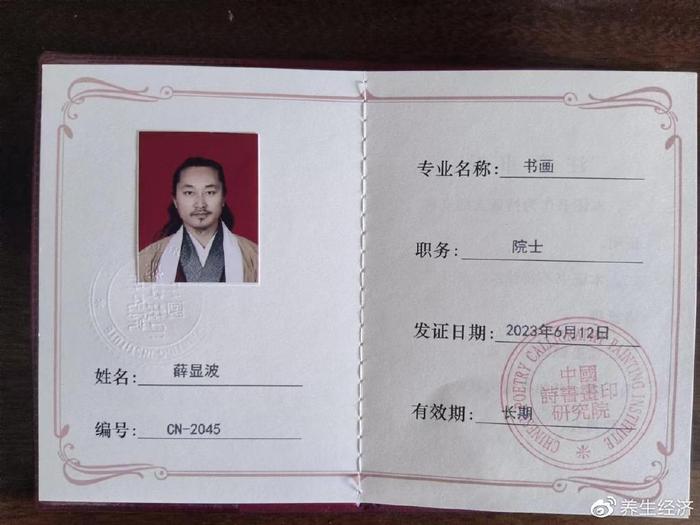 姓名: 薛显波
编号: CN-2045
专业名称: 书画
职务: 院士
发证日期: 2023年6月12日
有效期: 长期
CHINESE POETRY CALLIGRAPHY PAINTING INSTITUTE
中國
詩書畫印
研究院
@养生经济